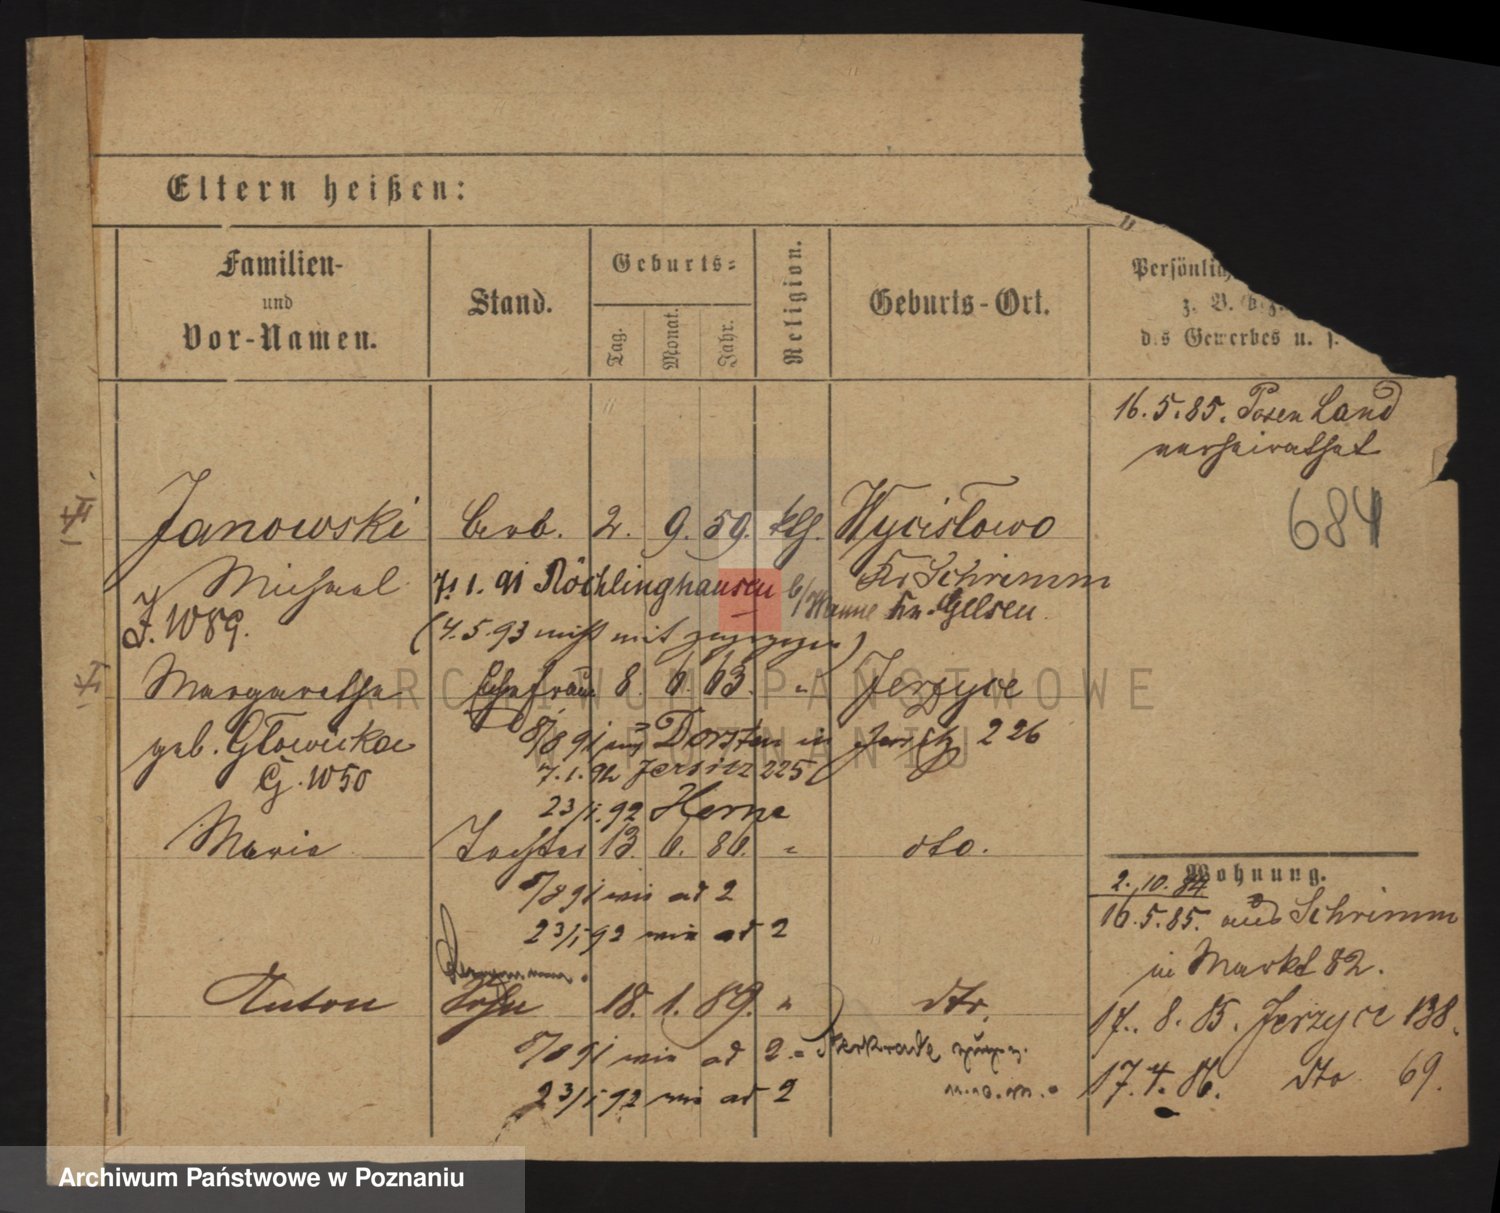 Eltern heißen:
Familien-
und
Vor-Namen.
Stand.
Geburts-
Tag.
Monat.
Jahr.
Religion.
Geburts-Ort.
Persönlich
z. B. bez.
des Gewerbes u. s.
16.5.85. Posen Land
verheirathet
684
Janowski Arb. 2. 9. 59. kth. Wycisłowo
Michael Kr Schrimm
7.1.91 Röchlinghausen b/Wanne Kr. Gelsen.
J. 1089.
(4.5.93 nicht mit zugezogen)
Margaretha Ehefrau 8. 6. 63. " Jerzyce
geb. Głowicka 8/8 91 aus Dorsten in Jersitz 226
G. 1050 7.1.92 Jersitz 225
23/1.92 Herne
Maria Tochter 13. 6. 86. " dto.
8/8 91 wie ad 2
23/1 92 wie ad 2
Anton Sohn 18. 1. 89. " dto.
8/8 91 wie ad 2 Sterkrade
23/1 92 wie ad 2
Wohnung.
2. 10. 84
16.5.85. aus Schrimm
in Markt 82.
17. 8. 85. Jerzyce 138.
17.4.86. dto 69.
ARCHIWUM PAŃSTWOWE
W POZNANIU
Archiwum Państwowe w Poznaniu